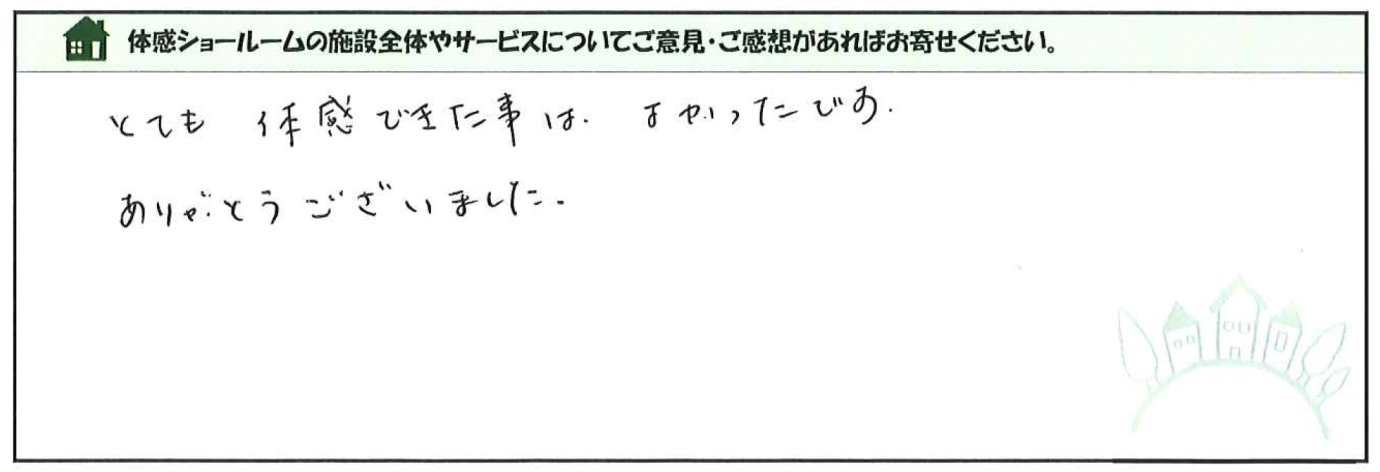 体感ショールームの施設全体やサービスについてご意見・ご感想があればお寄せください。
とても 体感できた事は. よかったです.
ありがとうございました.